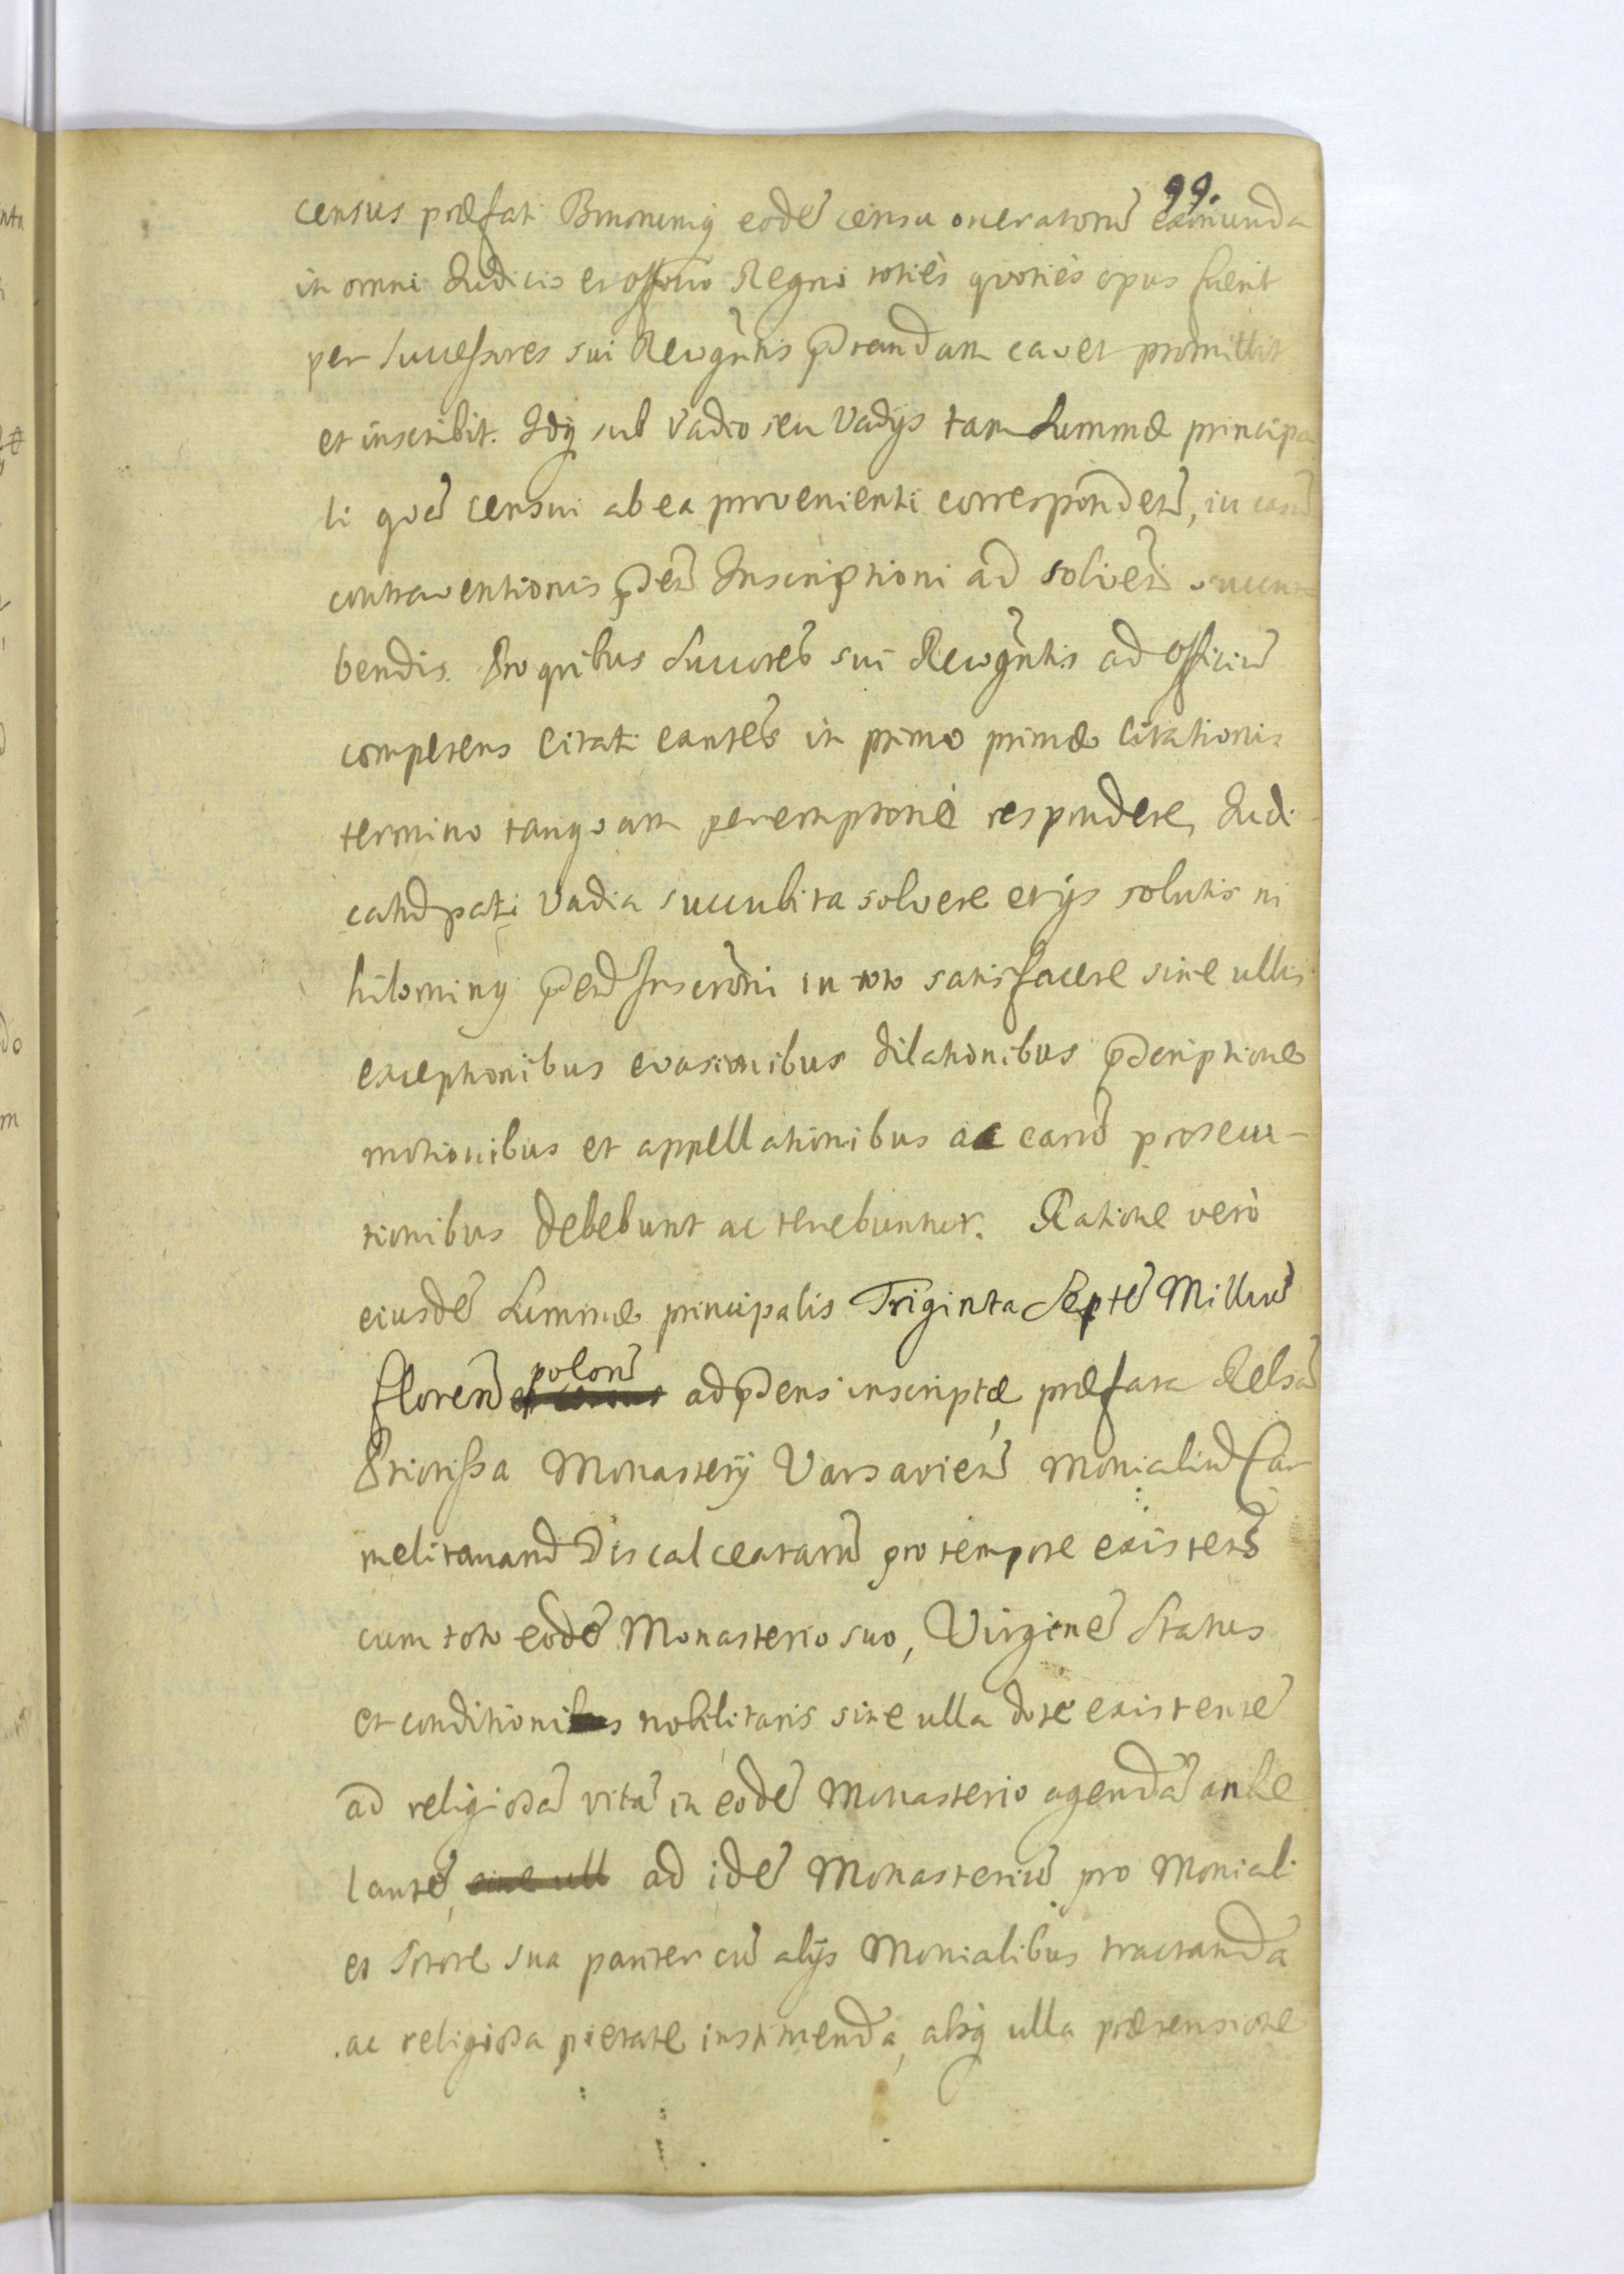 99.
census præfati Bmonumq eodē censu oneratorū eximenda
in omni Iudicio et officio Regni toties quotiès opus fuerit
per Successores sui Recogntis præstandam cavet promittit
et inscribit. Idq sub Vadio seu Vadys tam Summæ principa
li quā censui ab ea provenienti corresponden, in casū
contraventionis pnti Inscriptioni ad solven succum
bendis. Pro quibus Succores sui Recogntis ad Officiū
competens Citati eantes in primo primæ Citationis
termino tanquam peremptoriè respondere, Iudi-
catū pati Vadia succubita solvere et ijs solutis ni
hilominq pnti Inscrōni in toto satisfacere sine ullis
exceptionibus evasionibus dilationibus
motionibus et appellationibus ac earū prosecu-
tionibus debebunt ac tenebuntur. Ratione verò
eiusdē Summæ principalis Triginta Septē Milliū
florenō polonō ad præsens inscriptæ, præfata Relsa
Priorissa Monasterÿ Varsavien Monialiū Car
melitanarū Discalceatarū pro tempore existens
cum toto eodē Monasterio suo, Virginē Status
et conditionis nobilitaris sine ulla dote existentē
ad religiosā vitā in eodē Monasterio agendā anhe
lantē, sine ull ad idē Monasteriū pro Moniali
et Sorore sua pariter cū alÿs Monialibus tractandā
ac religiosa pietate instituendā, absq ulla prætensione